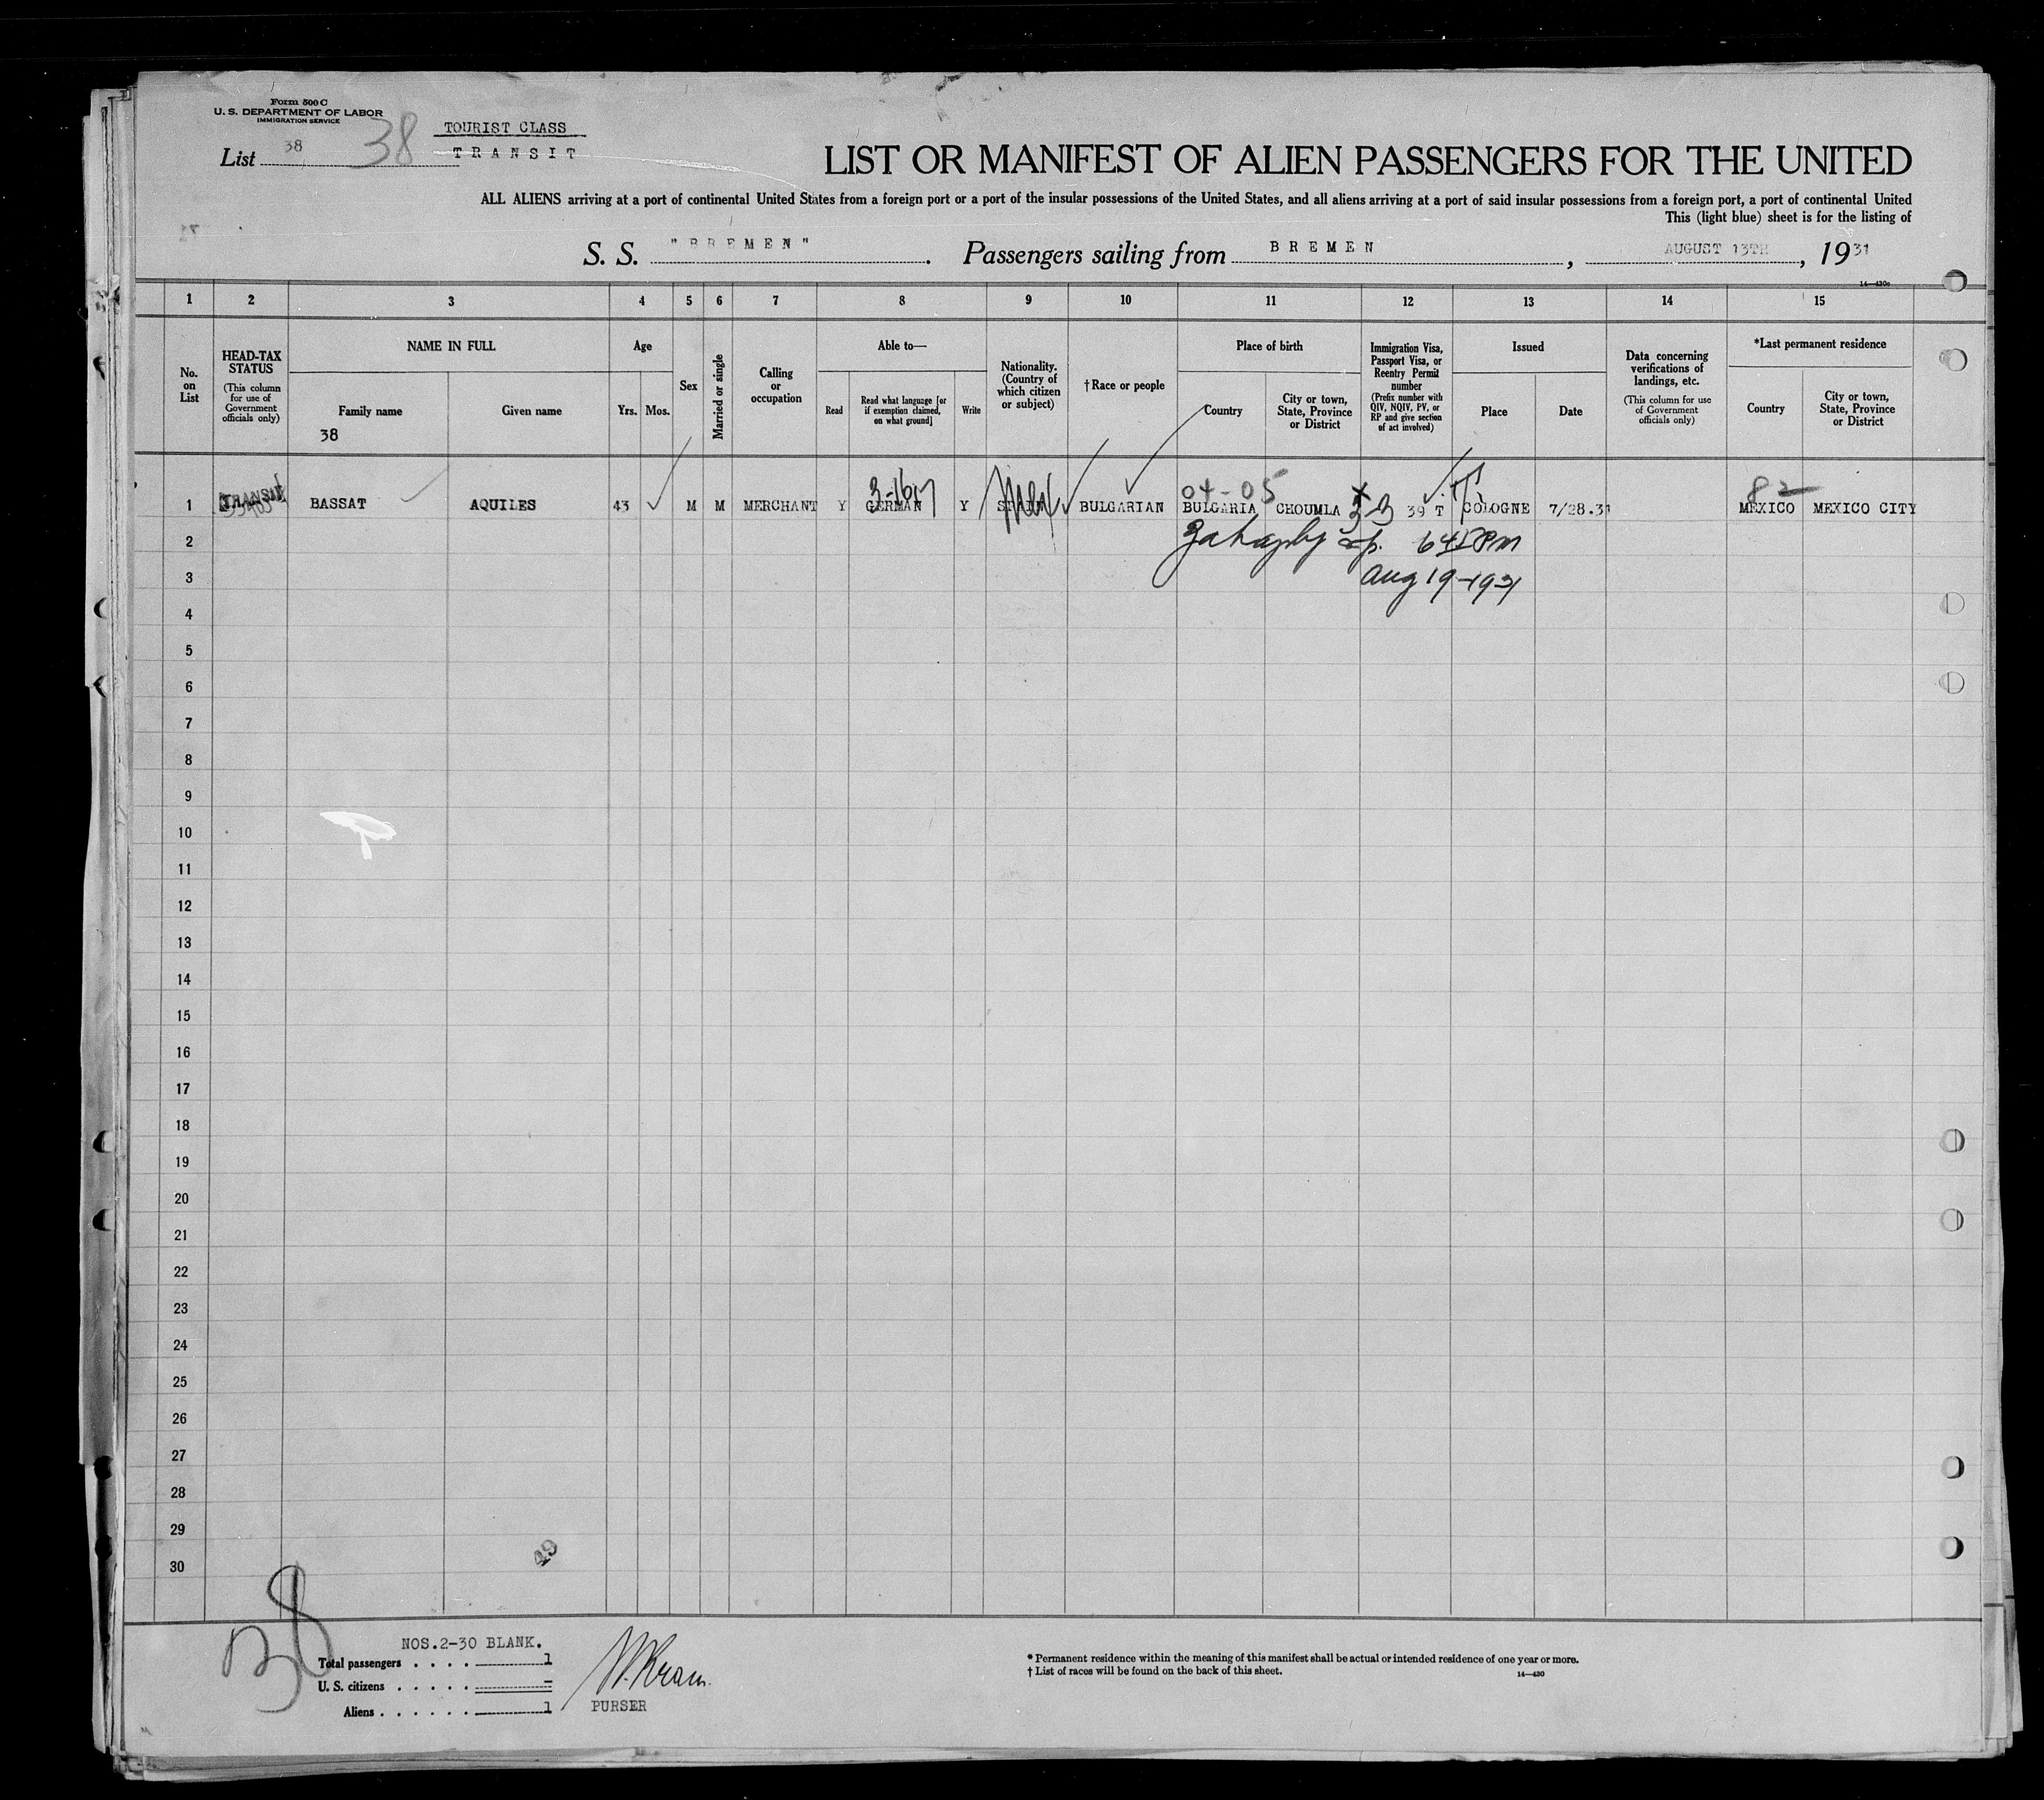 Form 500 C
U. S. DEPARTMENT OF LABOR
IMMIGRATION SERVICE
List 38 38
TOURIST CLASS
TRANSIT
LIST OR MANIFEST OF ALIEN PASSENGERS FOR THE UNITED
ALL ALIENS arriving at a port of continental United States from a foreign port or a port of the insular possessions of the United States, and all aliens arriving at a port of said insular possessions from a foreign port, a port of continental United
This (light blue) sheet is for the listing of
S. S. "BREMEN". Passengers sailing from BREMEN, AUGUST 13TH, 1931
14—430c
1 2 3 4 5 6 7 8 9 10 11 12 13 14 15
No. on List
HEAD-TAX STATUS
(This column for use of Government officials only)
NAME IN FULL
Family name
Given name
38
Age
Yrs. Mos.
Sex
Married or single
Calling or occupation
Able to—
Read
Read what language [or if exemption claimed, on what ground]
Write
Nationality. (Country of which citizen or subject)
†Race or people
Place of birth
Country
City or town, State, Province or District
Immigration Visa, Passport Visa, or Reentry Permit number
(Prefix number with QIV, NQIV, PV, or RP and give section of act involved)
Issued
Place
Date
Data concerning verifications of landings, etc.
(This column for use of Government officials only)
*Last permanent residence
Country
City or town, State, Province or District
04-05 82
1 TRANSIT BASSAT AQUILES 43 M M MERCHANT Y GERMAN Y BULGARIAN BULGARIA CHOUMLA 3-3 39 T COLOGNE 7/28.31 MEXICO MEXICO CITY
2 645 PM
3 Aug 19-1931
4
5
6
7
8
9
10
11
12
13
14
15
16
17
18
19
20
21
22
23
24
25
26
27
28
29
49
30
38
NOS.2-30 BLANK.
Total passengers . . . . 1
U. S. citizens . . . . . –
Aliens . . . . . . 1
PURSER
* Permanent residence within the meaning of this manifest shall be actual or intended residence of one year or more.
† List of races will be found on the back of this sheet.
14—430